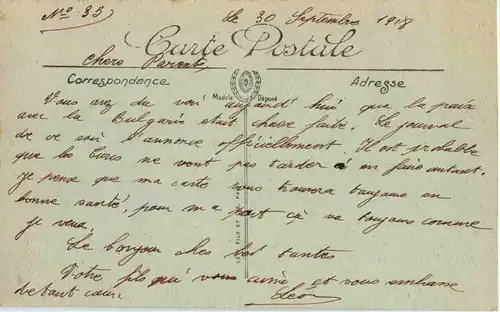 No 35
Le 30 Septembre 1918
Carte Postale
Chers Parents,
Correspondance
Adresse
Modèle Déposé
Vous avez du voir aujourd'hui que la paix
avec la Bulgarie etait chose faite. Le journal
de ce soir l'annonce officiellement. Il est probable
que les turcs ne vont pas tarder à en faire autant.
Je pense que ma carte vous trouvera toujours en
bonne santé, pour ma part ça va toujours comme
je veux.
Le bonjour chez les tantes
Votre fils qui vous aime et vous embrasse
de tout cœur. Léon